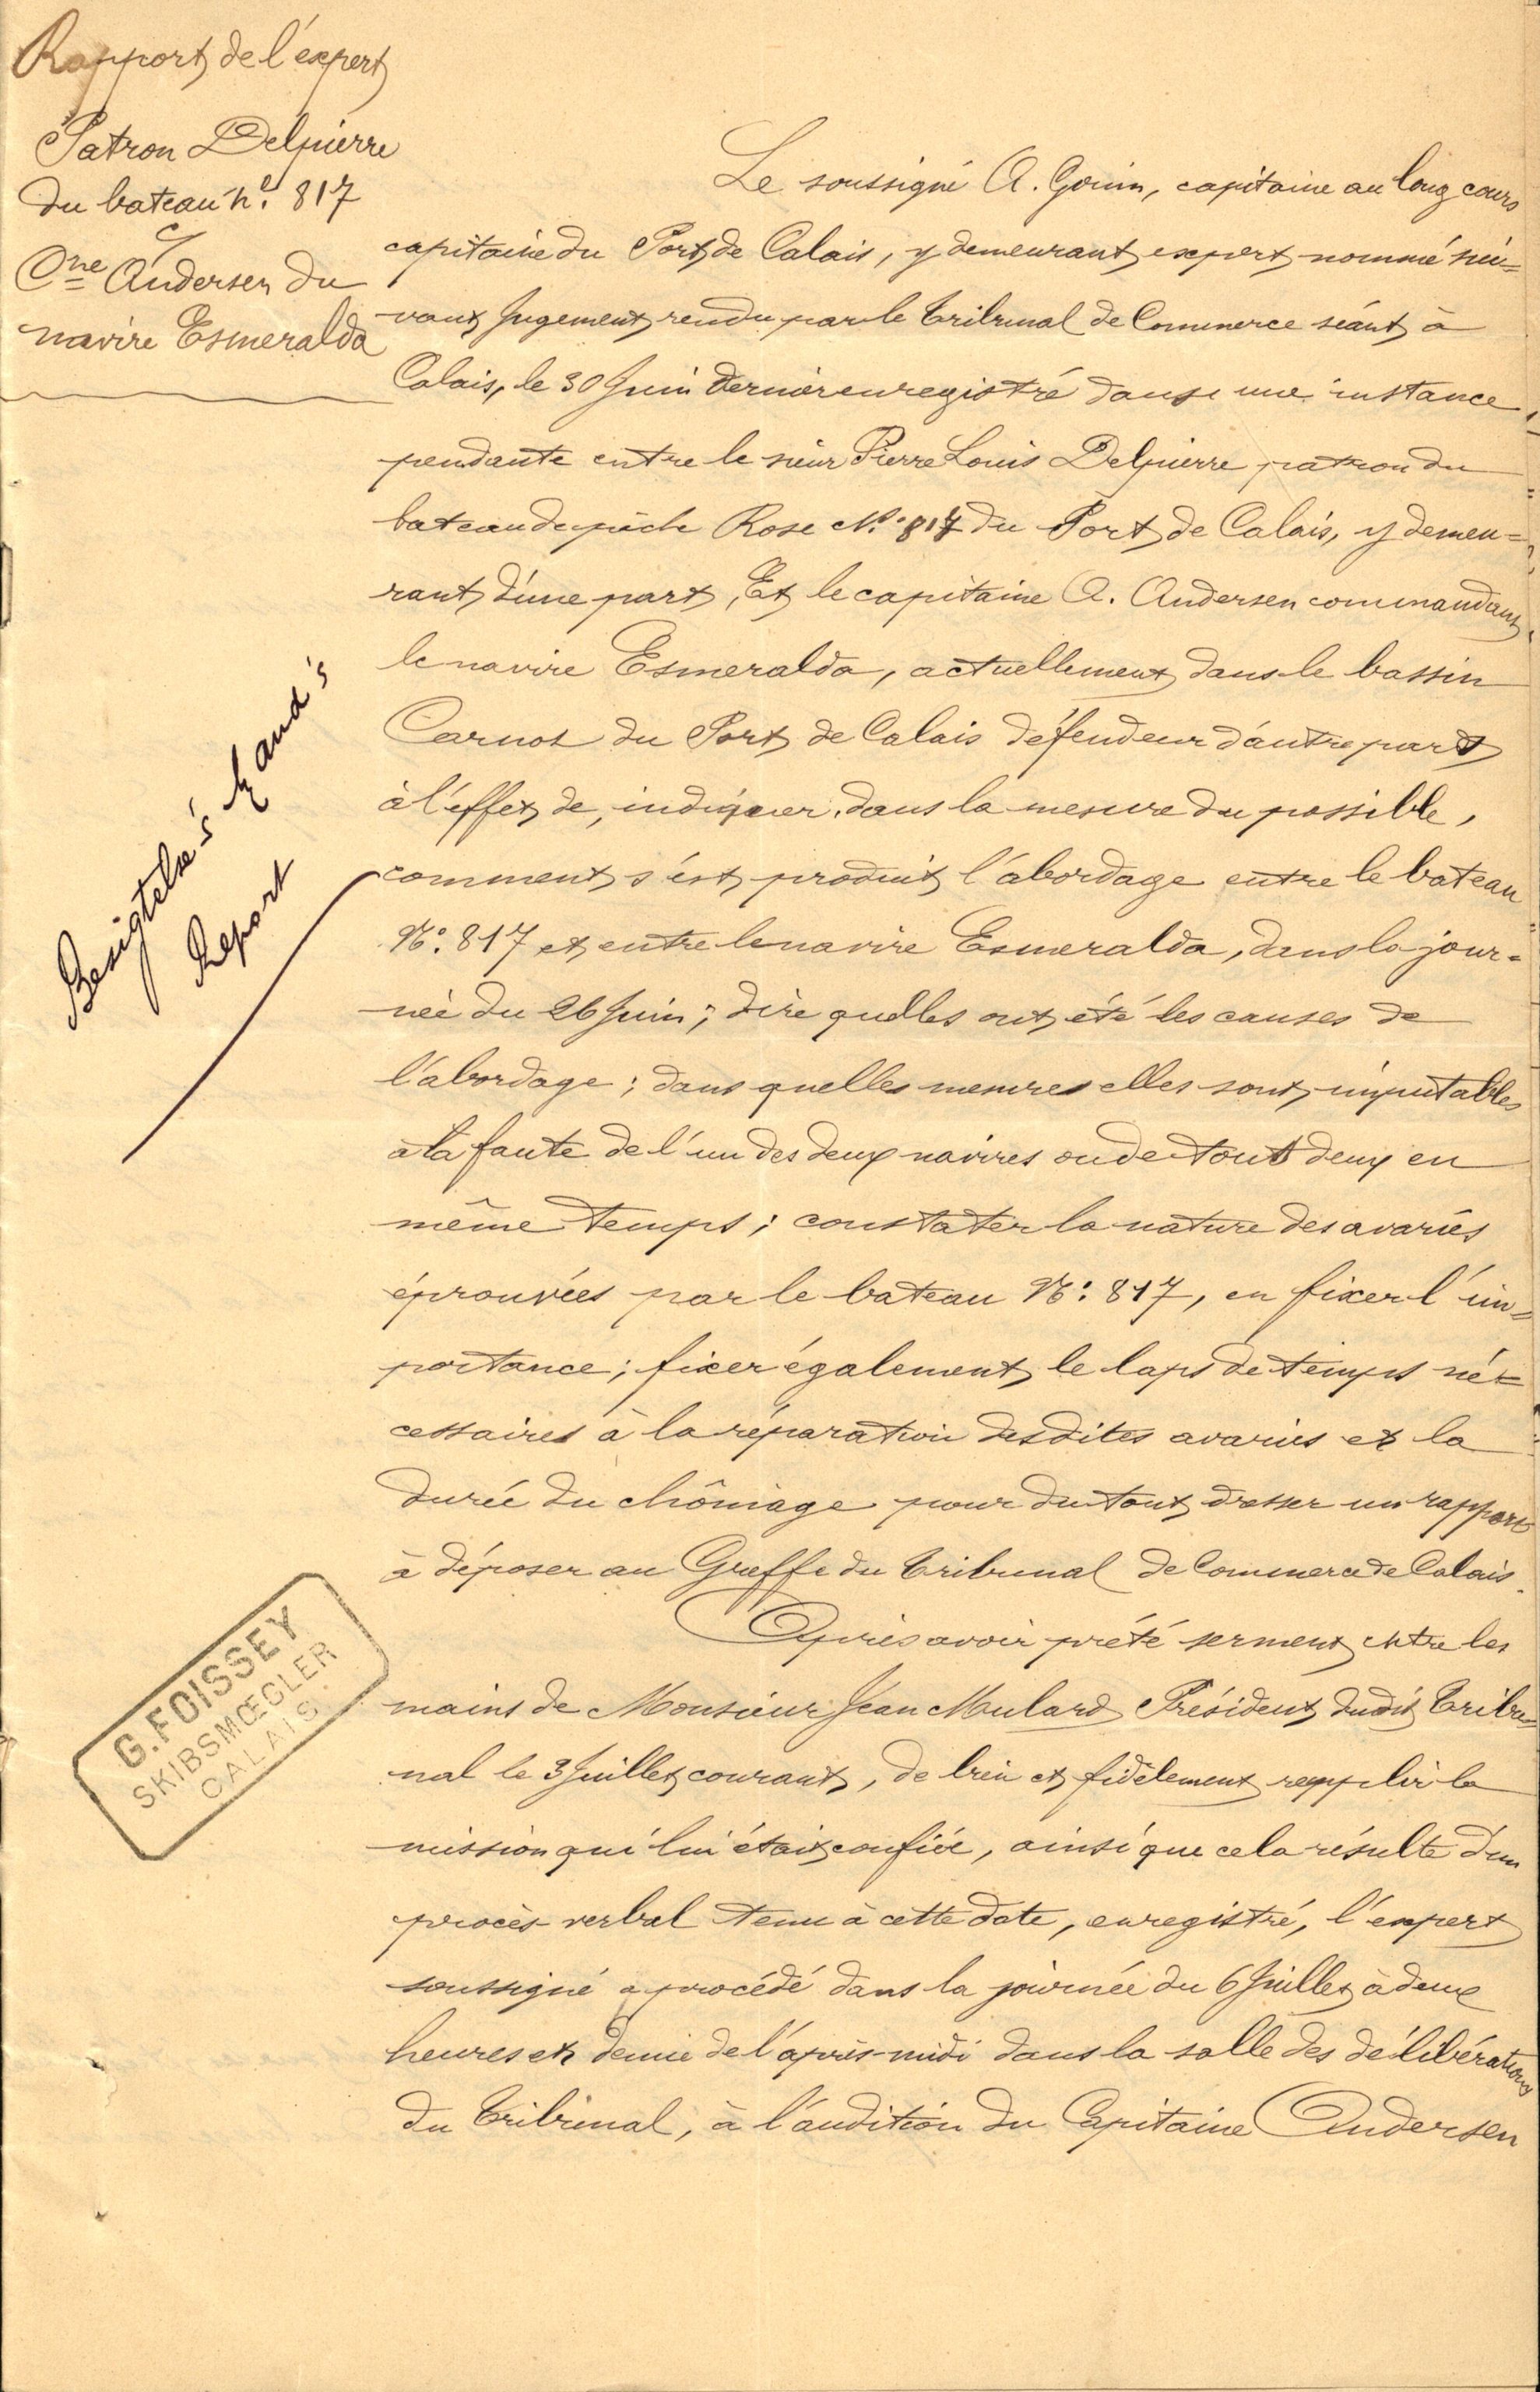 Rapport de l'éxpert
Patron Delpierre
du bateau n.o 817
c/
Cne Andersen du
navire Esmeralda
Le soussigné A. Gouin, capitaine au long cours
capitaine du Port de Calais, y demeurant, expert nommé sui=
vant Jugement rendu par le Tribunal de Commerce séant à
Calais, le 30 Juin dernier enregistré dans une instance
pendante entre le sieur Pierre Louis Delpierre patron du
bateau de pêche Rose No. 817 du Port de Calais, y demeu=
rant d'une part, Et le capitaine A. Andersen commandant
le navire Esmeralda, actuellement dans le bassin
Carnot du Port de Calais défendeur d'autre part
à l'effet de, indiquer, dans la mesure du possible,
comment s'est produit l'abordage entre le bateau
No. 817 et entre le navire Esmeralda, dans la jour=
née du 26 Juin; dire quelles ont été les causes de
l'abordage; dans quelles mesures elles sont imputables
à la faute de l'un des deux navires ou de tous deux en
même temps; constater la nature des avaries
éprouvées par le bateau No. 817, en fixer l'im=
portance; fixer également le laps de temps né=
cessaires à la réparation desdites avaries et la
durée du chômage pour du tout dresser un rapport
à déposer au Greffe du Tribunal de Commerce de Calais.
Après avoir prêté serment entre les
mains de Monsieur Jean Mulard Président dudit Tribu=
nal le 3 Juillet courant, de bien et fidèlement remplir la
mission qui lui était confiée, ainsi que cela résulte d'un
procès-verbal tenu à cette date, enregistré, l'expert
soussigné a procédé dans la journée du 6 Juillet à deux
heures et demie de l'après-midi dans la salle des délibérations
du Tribunal, à l'audition du Capitaine Andersen
Besigtelse's Mand's
Report
G. FOISSEY
SKIBSMŒGLER
CALAIS.